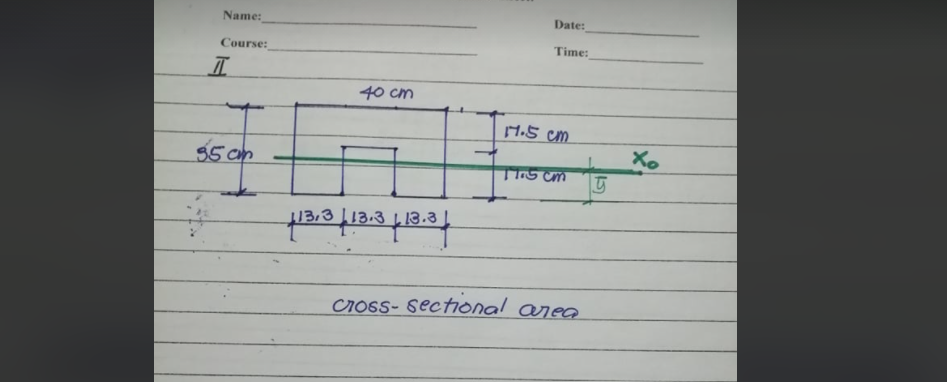 Name:
Date:
Course:
Time:
II
40 cm
17.5 cm
35 cm
X₀
17.5 cm
ȳ
13.3 13.3 13.3
cross-sectional area